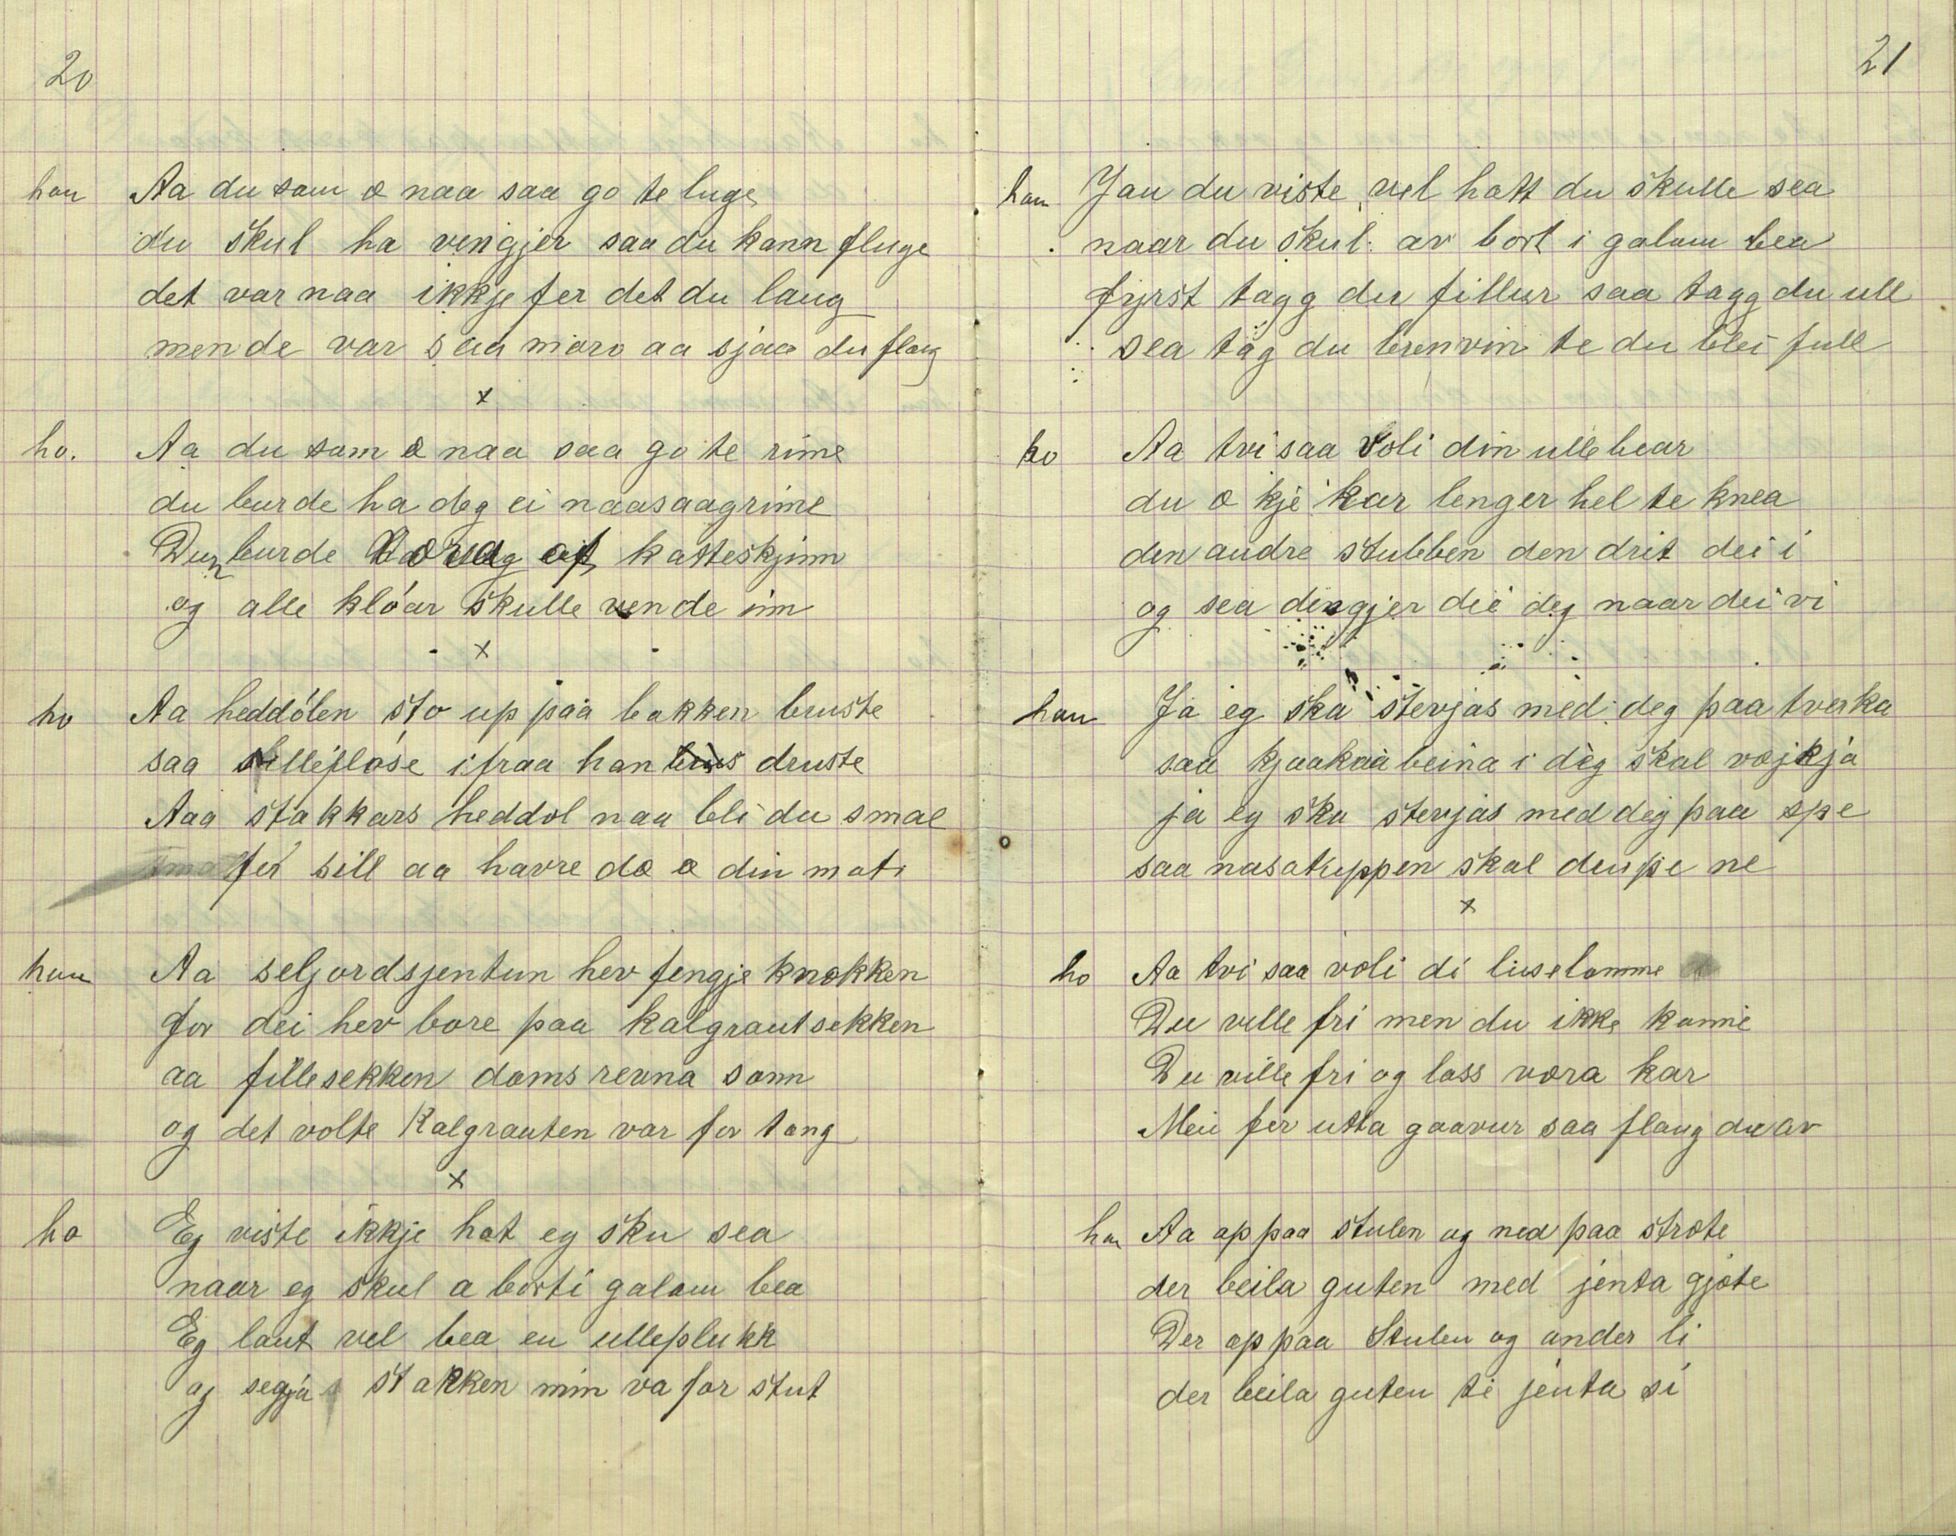 20
han Aa du som æ naa saa go te luge
du skul ha vengjer saa du kann fluge
det var naa ikkje fer det du laug
men de var saa moro aa sjaa du flaug
x
ho. Aa du som æ naa saa go te rime
du burde ha deg ei naasaagrime
Dun burde af katteskjinn
og alle klóar skulle vende inn
x
ho Aa heddólen sto up paa bakken bruste
saa filleflóse ifraa han druste
Aaa stakkars heddol naa bli du smal
fer sill aa havre dæ æ din mat
han Aa seljordsjentun hev fengje knekken
for dei hev bore paa kalgrautsekken
aa fillesekken doms revna sonn
og det volte Kalgrauten var for tong
x
ho Eg viste ikkje hot eg sku sea
naar eg skul a bort i galom bea
Eg laut vel bea en ulleplukk
og segja stakken min va for stut
21
han Jau du viste vel hott du skulle sea
naar du skul av bort i galom bea
fyrst togg du fillur saa togg du ull
sea tóg du brenvin te du blei full
ho Aa tvi saa voli din ullebear
du æ kje kar lenger hel te knea
den andre stubben den drit dei i
og sea dengjer dei deg naar dei vi
han Ja eg ska stevjas med deg paa tverka
saa kjaakaabeina i deg skal vejkja
ja eg ska stevjas med deg paa spe
saa nasatuppen skal drupe ne
x
ho Aa tvi saa voli di luselomme
Du ville fri men du ikke konne
Du ville fri og lass vœra kar
Men fer utta gaavur saa flaug du av
han Aa op paa stulen og ned paa strœte
der beila guten med jenta gjœte
Der op paa Stulen og under li
der beila guten ti jenta si